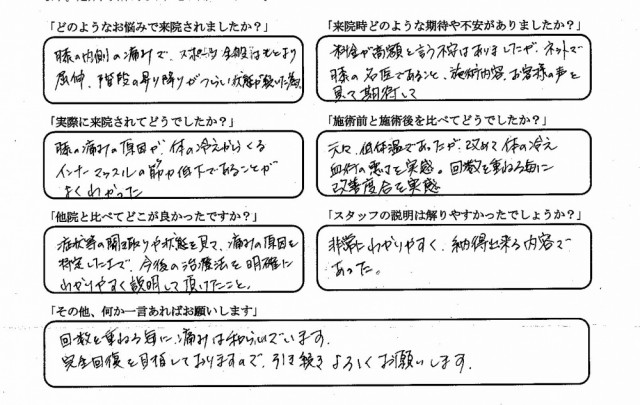 「どのようなお悩みで来院されましたか？」
膝の内側の痛みで、スポーツ全般はもとより
屈伸、階段の昇り降りがつらい状態が続いた為。
「来院時どのような期待や不安がありましたか？」
料金が高額と言う不安はありましたが、ネットで
膝の名医であること、施術内容、お客様の声を
見て期待して
「実際に来院されてどうでしたか？」
膝の痛みの原因が、体の冷えからくる
インナーマッスルの筋力低下であることが
よくわかった
「施術前と施術後を比べてどうでしたか？」
元々、低体温であったが、改めて体の冷え
血行の悪さを実感。回数を重ねる毎に
改善度合を実感
「他院と比べてどこが良かったですか？」
症状等の聞き取りや状態を見て、痛みの原因を
特定した上で、今後の治療法を明確に
わかりやすく説明して頂けたこと。
「スタッフの説明は解りやすかったでしょうか？」
非常にわかりやすく、納得出来る内容で
あった。
「その他、何か一言あればお願いします」
回数を重ねる毎に、痛みは和らいでいます。
完全回復を目指しておりますので、引き続きよろしくお願いします。